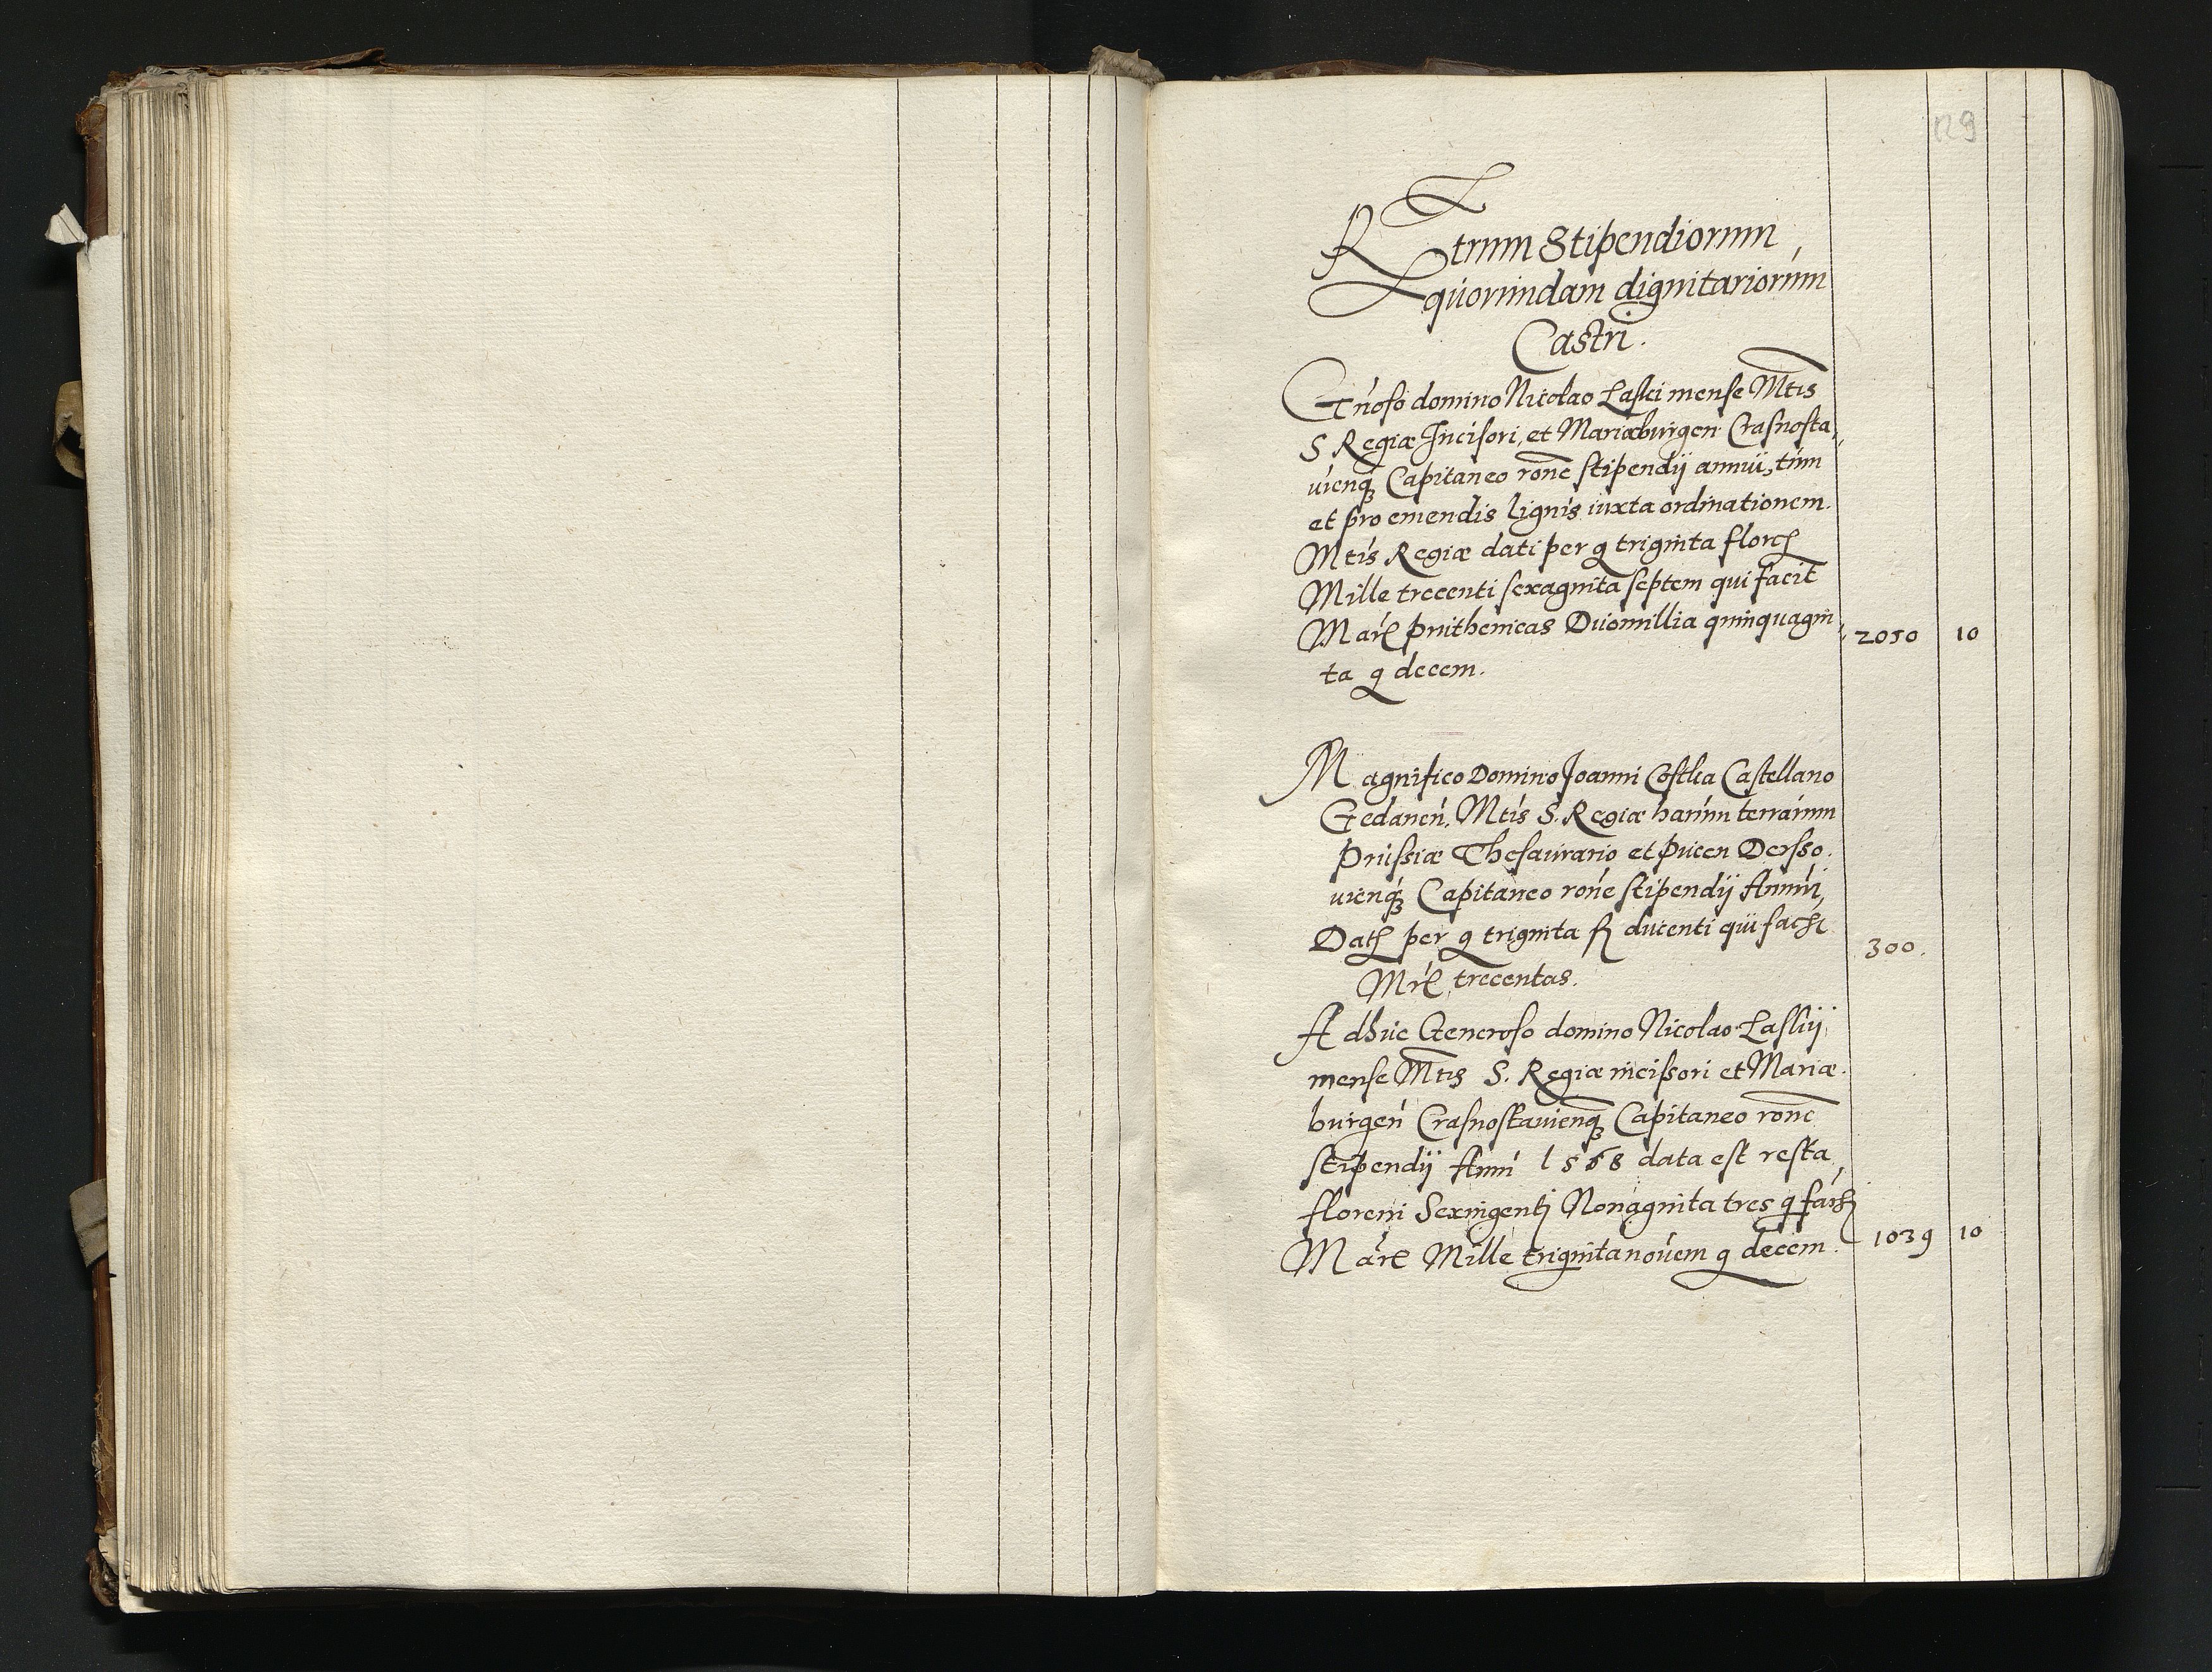 129
Rtrum Stipendiorum
quorundam dignitariorum
Castri.
Gnoso domino Nicolao Laski mense Mtis
S Regiæ Incisori, et Mariæburgen Crasnosta,
uienq Capitaneo rone stipendij annui, tum
et pro emendis lignis iuxta ordinationem.
Mtis Regiæ dati per g triginta flor
Mille trecenti sexaginta septem qui facit
Mar pruthenicas Duomillia quinquagin, 2050 10
ta g decem.
Magnifico Domino Joanni Costka Castellano
Gedanen. Mtis S. Regiæ harum terrarum
Prussiæ Thesaurario et pucen Dersso.
uienq Capitaneo rone stipendij Annui,
Dat per g triginta fl ducenti qui fac
Mr trecentas. 300.
Adhuc Generoso domino Nicolao Laskij
mense Mtis S. Regiæ incissori et Mariæ.
burgen Crasnostauienq Capitaneo rone
stipendij Anni 1568 data est resta,
floreni Sexingenti Nonaginta tres q fac
Mar Mille triginta nouem g decem. 1039 10